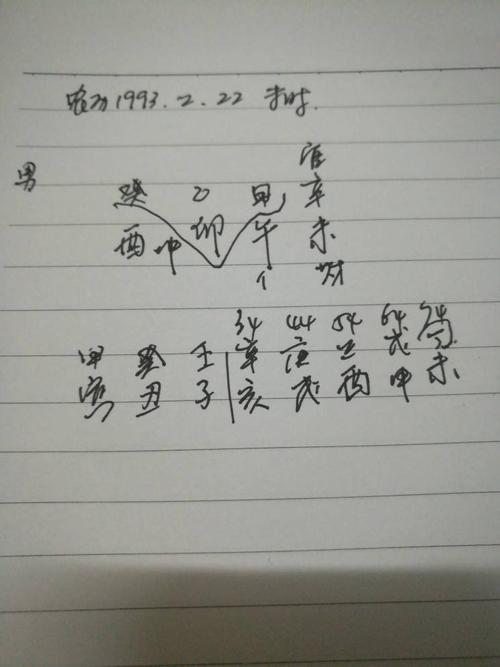 阴历1993.2.22 未时.
官
男 癸 乙 甲 辛
酉 冲 卯 午 未
个 财
34 44 54 64 74
甲 癸 壬 辛 庚 己 戊
寅 丑 子 亥 戌 酉 申 未